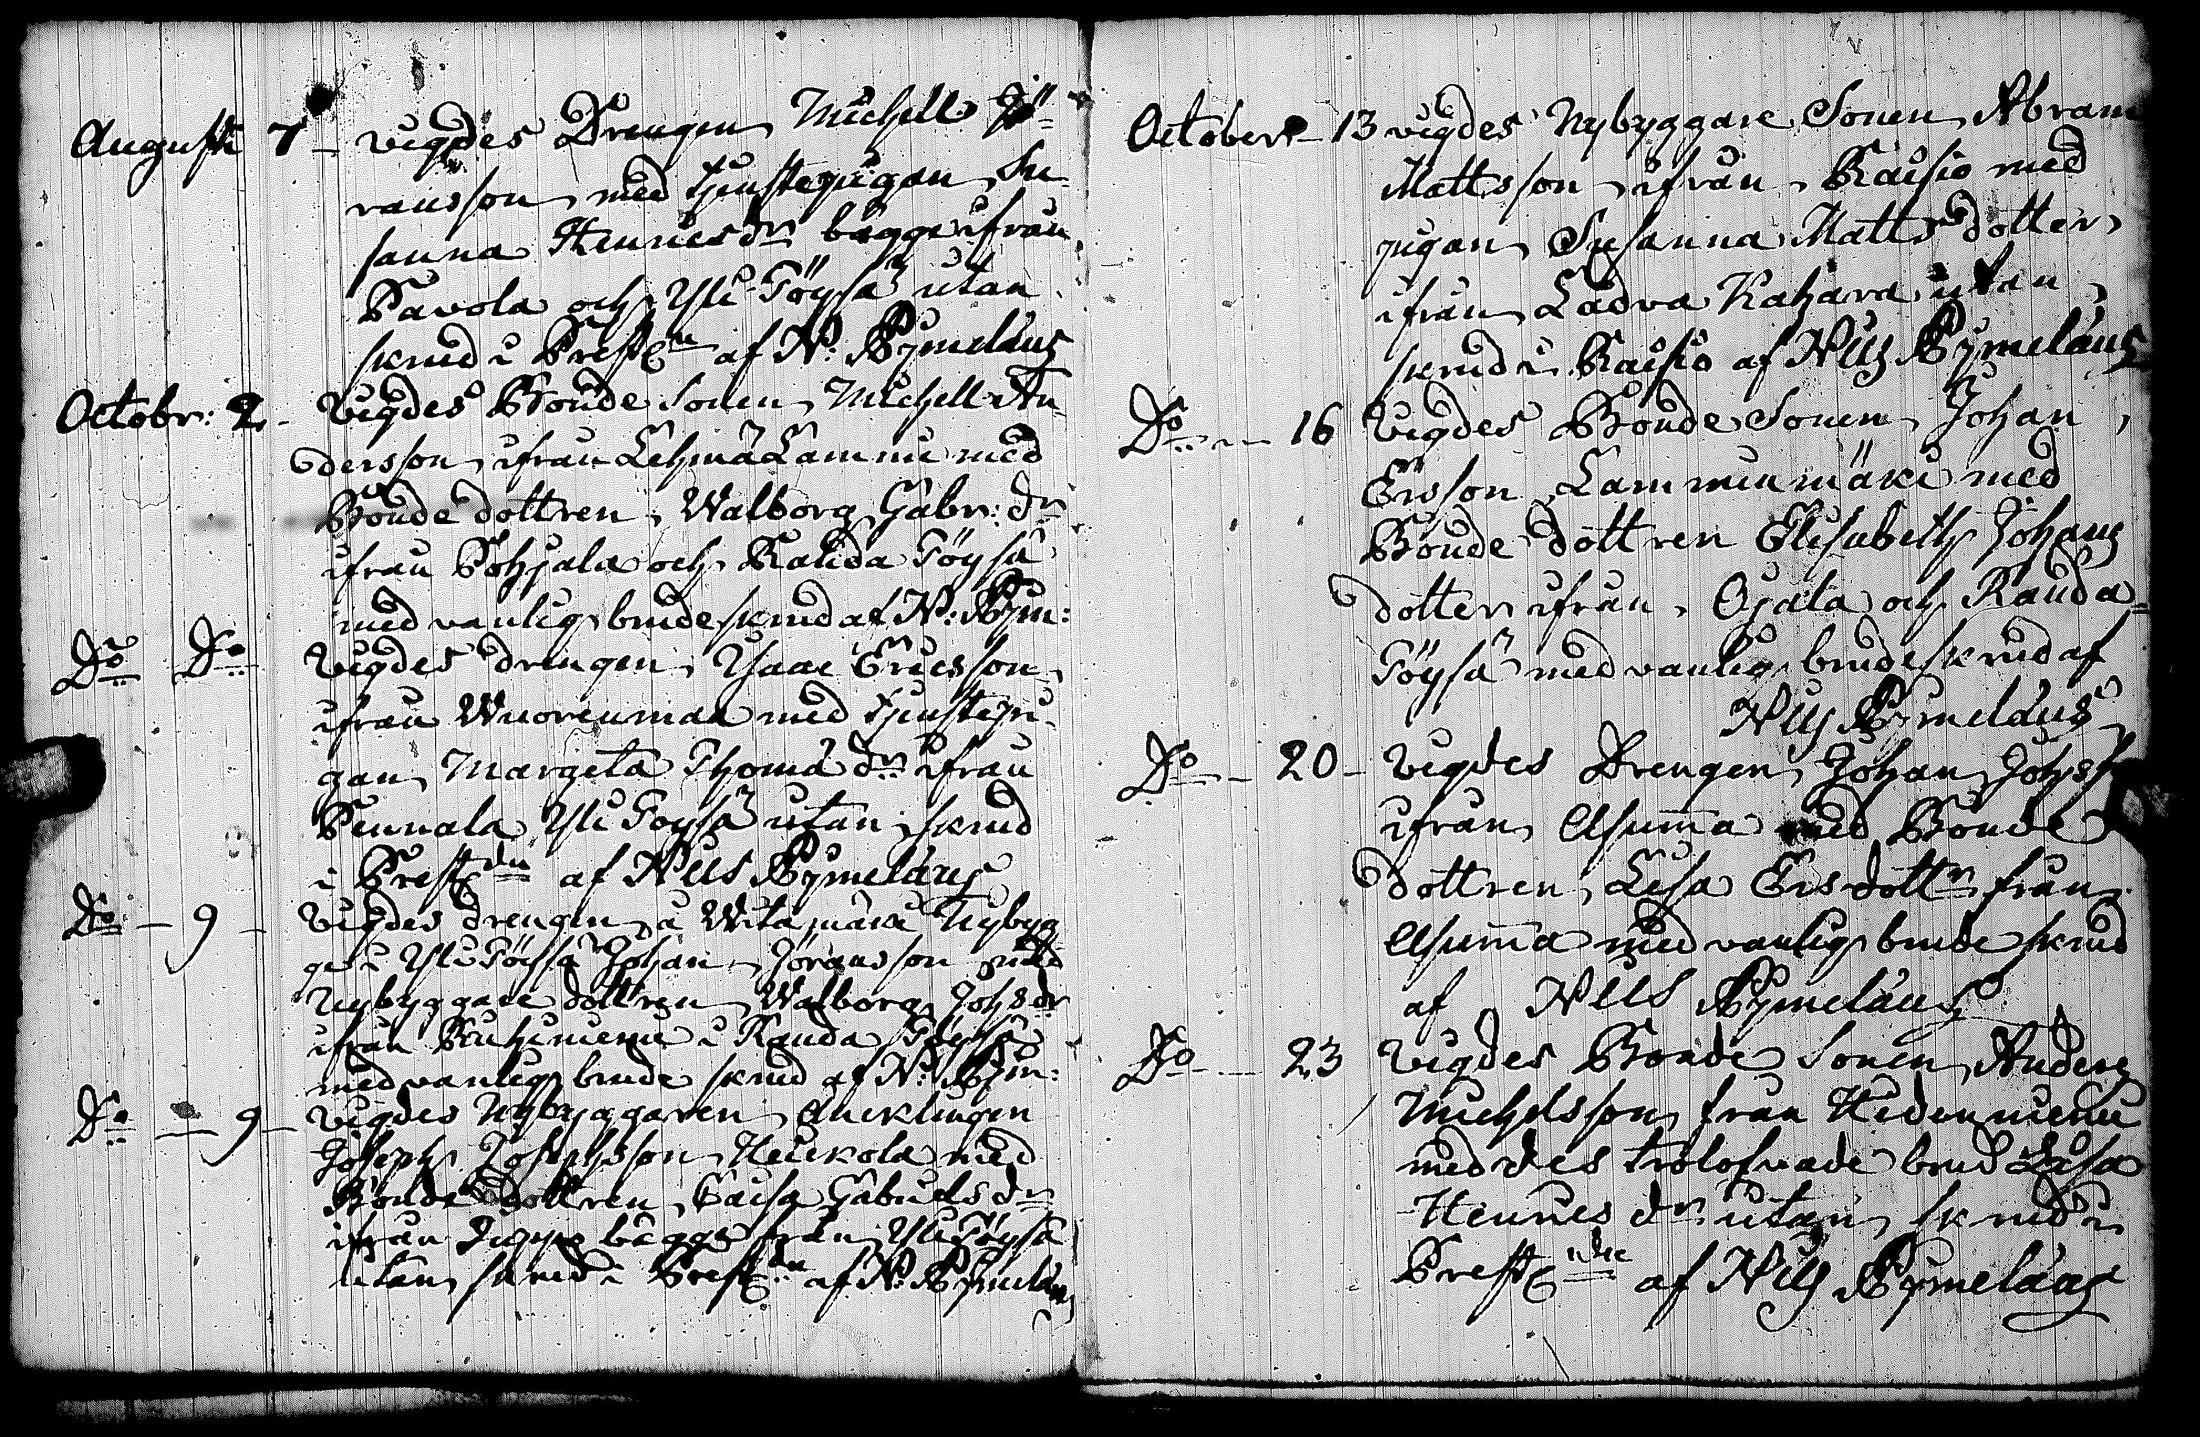 Augusti 7 – vigdes Drengen Michell Jö-
ransson med tjenstepigan Su
sanna Henricsdr bägge ifrån
Pavola och Yli Töysä utan
skrud i Prestg:n af N: Rymelæus
Octobr: 2 – vigdes Bonde Sonen Michell An-
dersson ifrån Lehmä Lammi med
Bonde dottren Walborg Gabr: dr
ifrån Pohjala och Rauda Töysä
med vanlig brudeskrud af N: Rym:
Do Do vigdes drengen Ysaac Ericsson
ifrån Wuorenmaa med tjenstepi-
gan Margeta Thoma dr ifrån
Pennala Yli Töysä utan skrud
i Prestg:den af Nils Rymelæus
Do – 9 – vigdes drengen å Nybyg
ge i Yli Töisä Johan Jöransson med
Nybyggare dottren Walborg Johsdr
ifrån i Rauda Töysä
med vanlig brude skrud af N: Rym:
Do – 9 – vigdes Nybyggaren Encklingen
Joseph Josephsson Heickola med
Bonde dottren Caisa Gabrielsdr
ifrån bägge från Yli Töysä
utan skrud i Prestg:dn af N: Rymelæus
October – 13 vigdes Nybyggare Sonen Abram
Mattsson ifrån Raisio med
pigan Susanna Matts dotter
ifrån Ladva Kahava utan
skrud i Raisio af Nils Rymelæus
Do – – 16 vigdes Bonde Sonen Johan
Ersson Lamminmäki med
Bonde dottren Elisabeth Johans
dotter ifrån Ojala och Rauda=
Töysä med vanlig brudeskrud af
Nils Rymelæus
Do – 20 – vigdes Drengen Johan Johss:
ifrån Asunma med Bonde
dottren Lisa Ersdottr från
Asunma med vanlig brude skrud
af Nils Rymelæus
Do – – 23 vigdes Bonde Sonen Anders
Michelsson från Hidenniemi
med des trolofvade brud Lisa
Henrics dr utan skrud i
Prestg:den af Nils Rymelæus